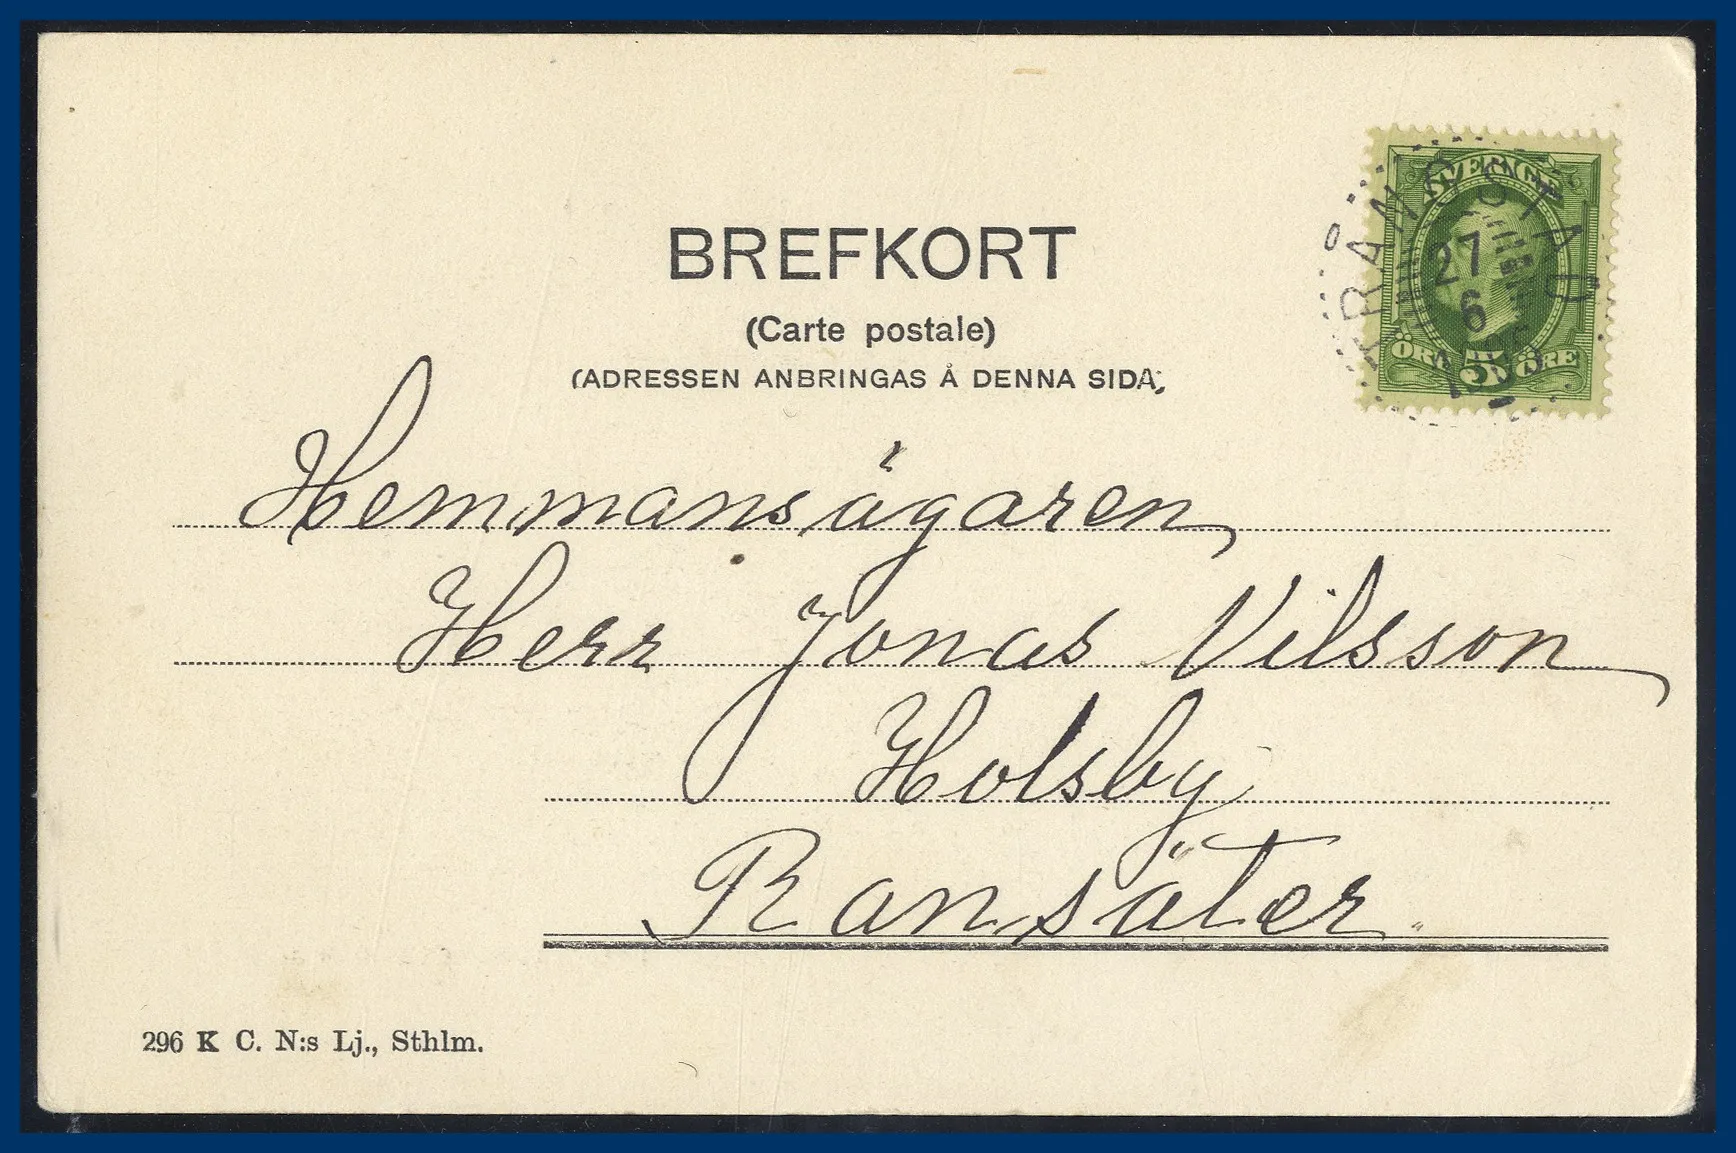 SVERIGE
27
6
ÖRE 5 ÖRE
BREFKORT
(Carte postale)
(ADRESSEN ANBRINGAS Å DENNA SIDA)
Hemmansägaren
Herr Jonas Nilsson
Holsby
Ransäter.
296 K C. N:s Lj., Sthlm.